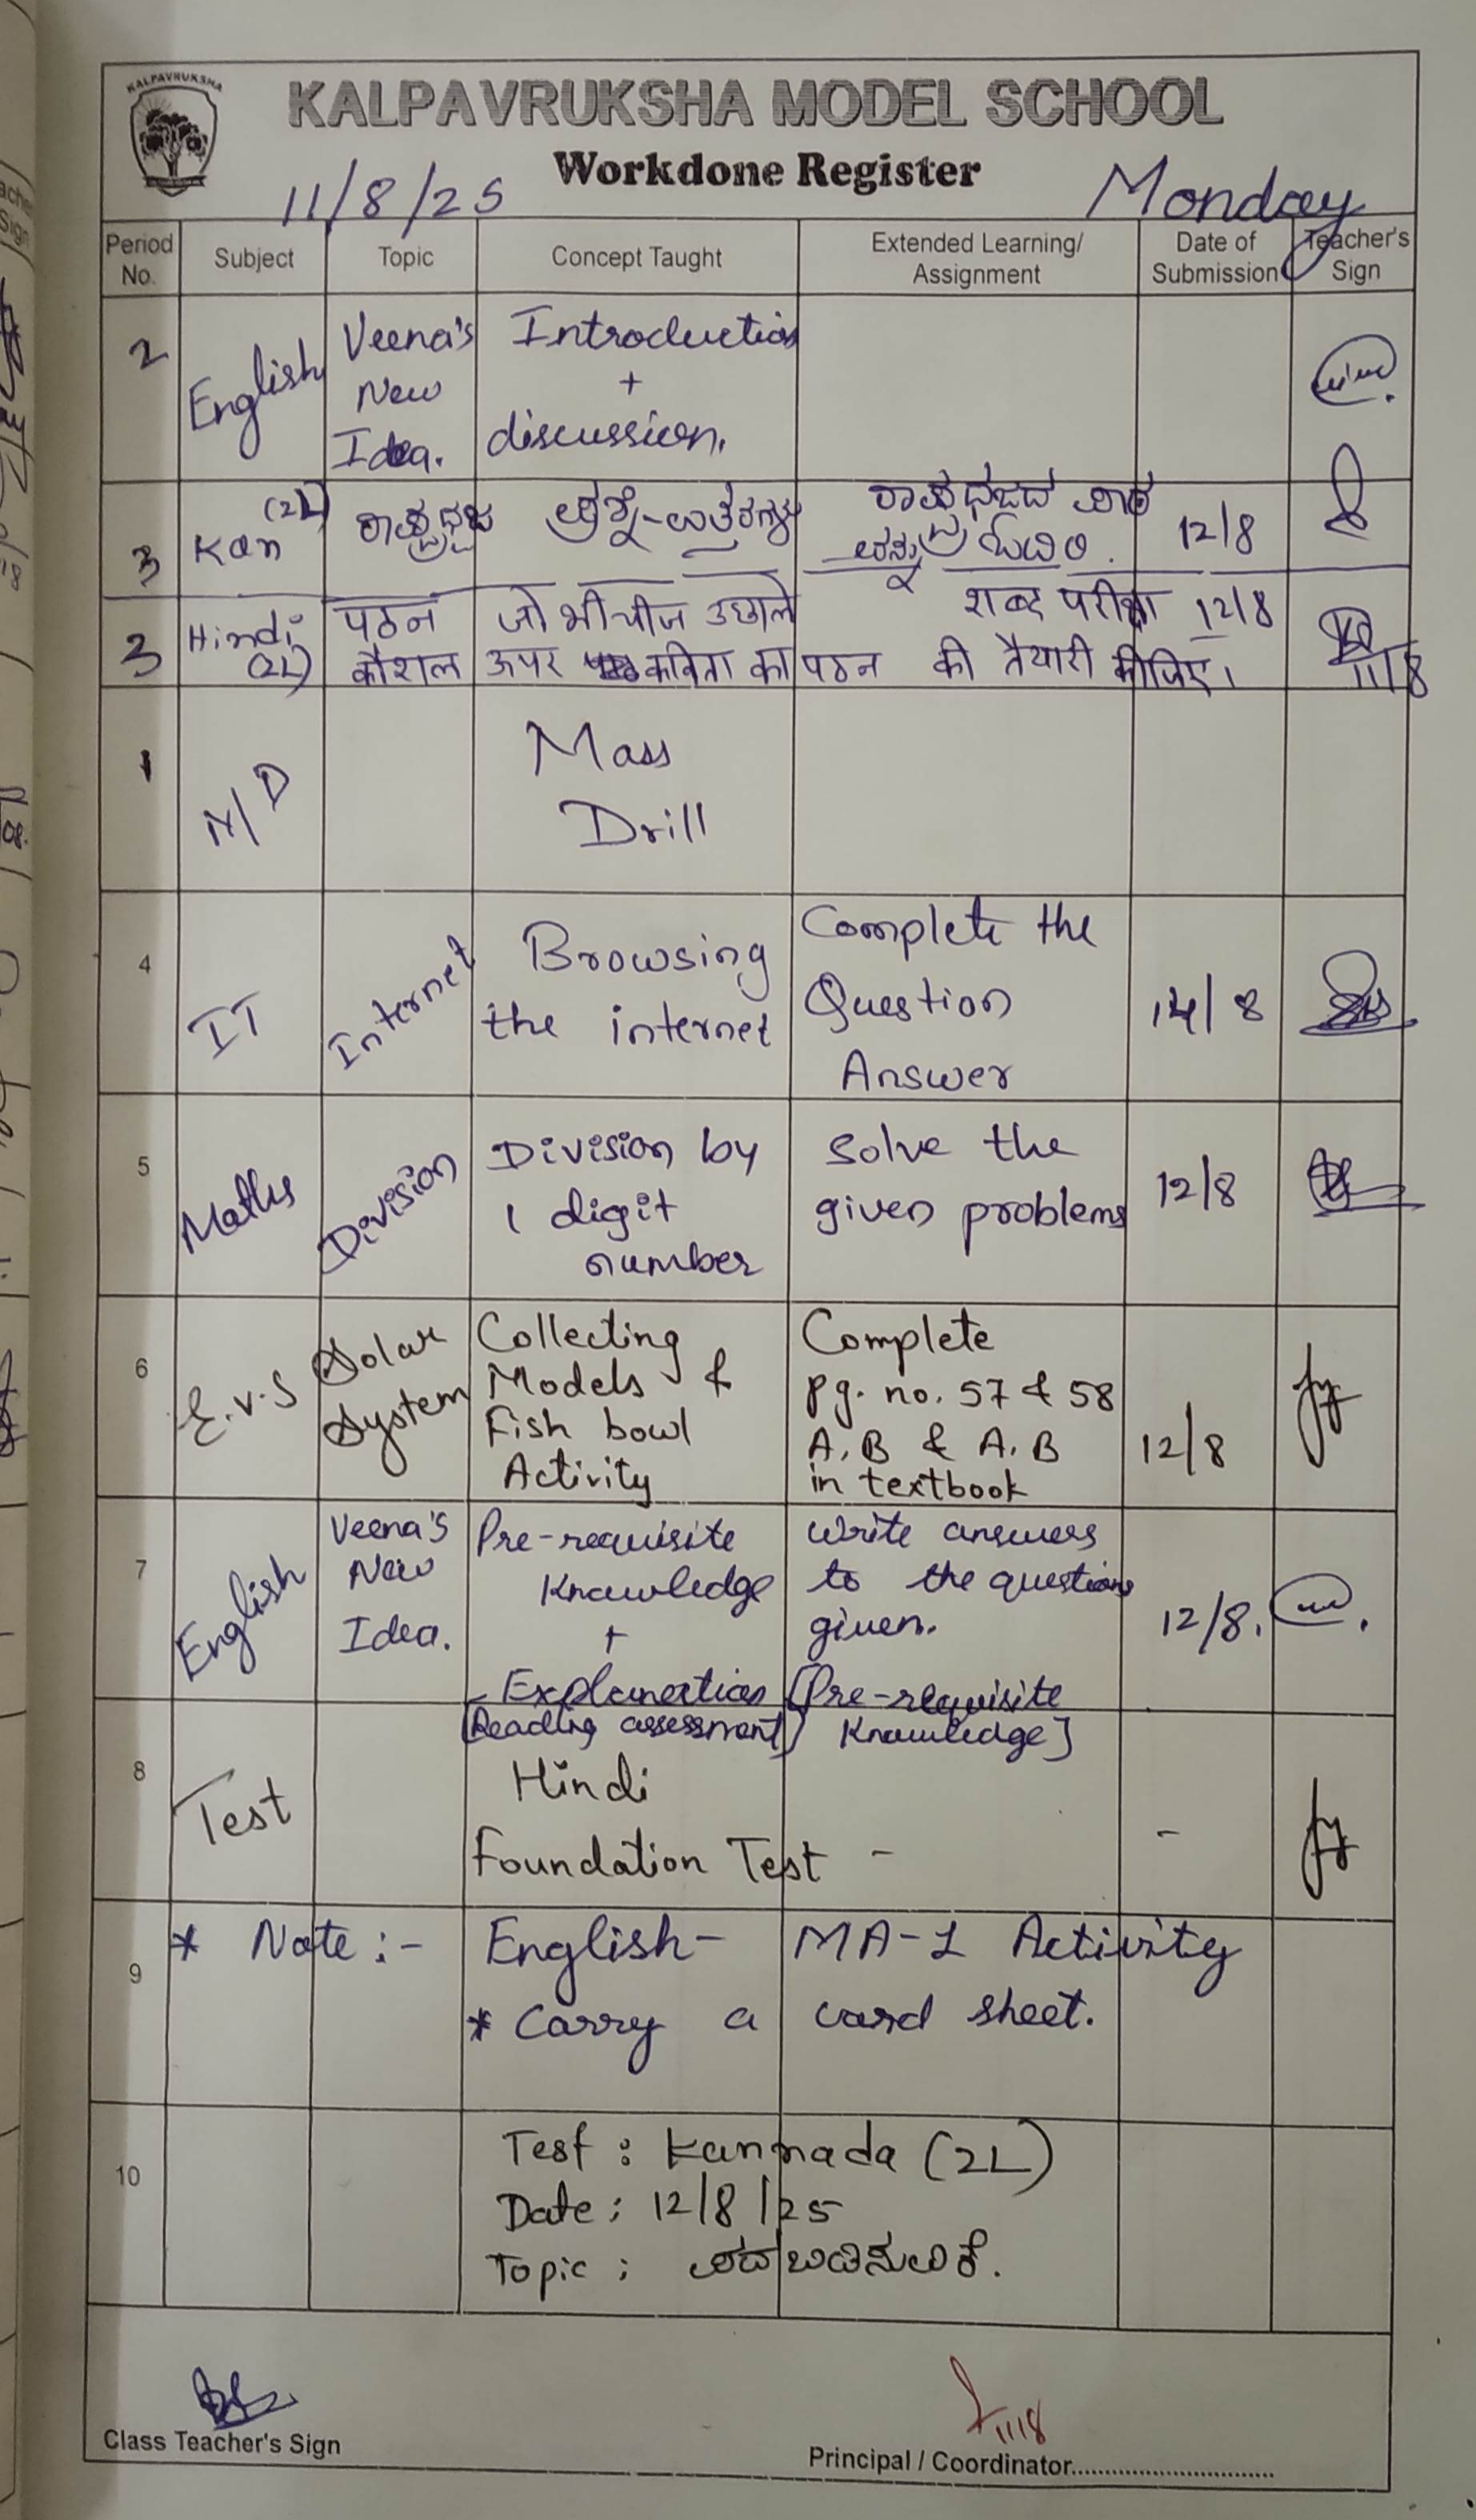 KALPAVRUKSHA
KALPAVRUKSHA MODEL SCHOOL
Workdone Register
11/8/25 Monday
Period No. Subject Topic Concept Taught Extended Learning/ Assignment Date of Submission Teacher's Sign
2 English Veena's New Idea. Introduction + discussion.
3 Kan (2L) ರಾಷ್ಟ್ರಧ್ವಜ ಪ್ರಶ್ನೆ-ಉತ್ತರಗಳು ರಾಷ್ಟ್ರಧ್ವಜದ ಪಾಠ ವನ್ನು ಓದಿರಿ. 12/8
3 Hindi (2L) पठन कौशल जो भी चीज उछाले ऊपर कविता का पठन शब्द परीक्षा की तैयारी कीजिए। 12/8
11/8
1 M/D Mass Drill
4 IT Internet Browsing the internet Complete the Question Answer 14/8
5 Maths Division Division by 1 digit number Solve the given problems 12/8
6 E.V.S Solar System Collecting Models & Fish bowl Activity Complete pg. no. 57 & 58 A, B & A, B in textbook 12/8
7 English Veena's New Idea. Pre-requisite Knowledge + Explanation (Reading assessment) Write answers to the questions given. [Pre-requisite Knowledge] 12/8.
8 Test Hindi Foundation Test - -
9 * Note :- English - MA-1 Activity
* Carry a card sheet.
10 Test : Kannada (2L)
Date : 12/8/25
Topic : ಪದ ಬಿಡಿಸುವಿಕೆ.
Class Teacher's Sign
11/8
Principal / Coordinator..............................